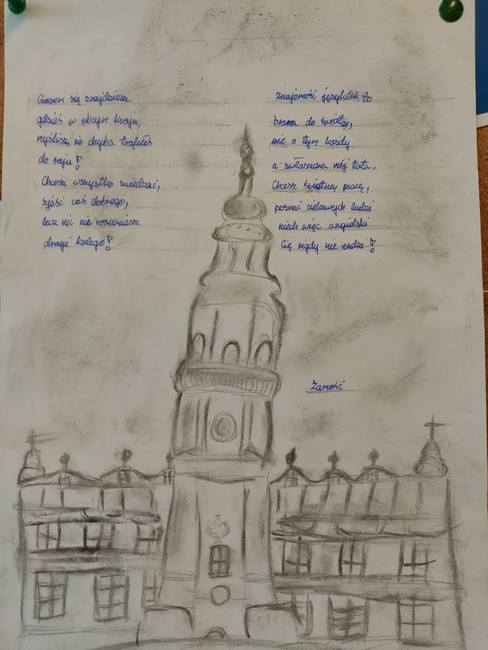 Czasem się znajdziesz
gdzieś w obcym kraju,
myślisz że chyba trafiłeś
do raju!
Chcesz wszystko zwiedzać,
zjeść coś dobrego,
lecz nic nie rozumiesz
drogi kolego!
znajomość języków to
brama do świata,
wie o tym każdy
a zwłaszcza mój tata.
Chcesz świetną pracę,
poznać ciekawych ludzi
niech więc angielski
Cię nigdy nie nudzi!
Zamość